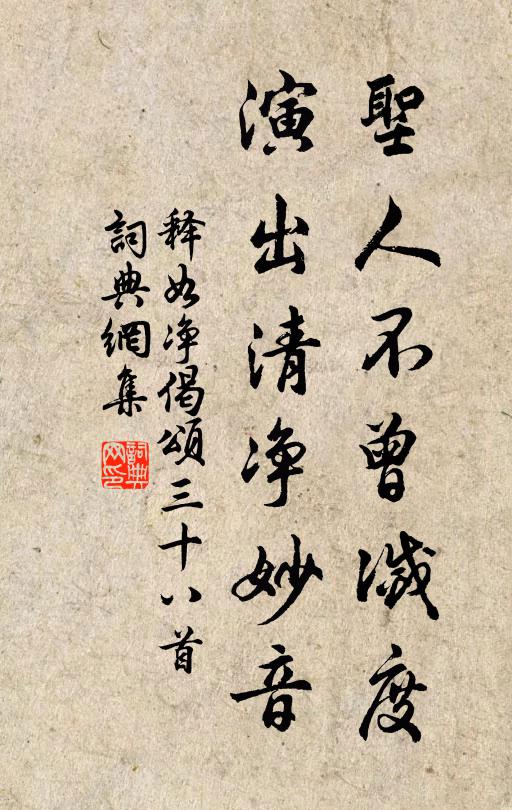 聖人不曾滅度
演出清净妙音
释如净偈頌三十八首
詞典網集
詞典網印